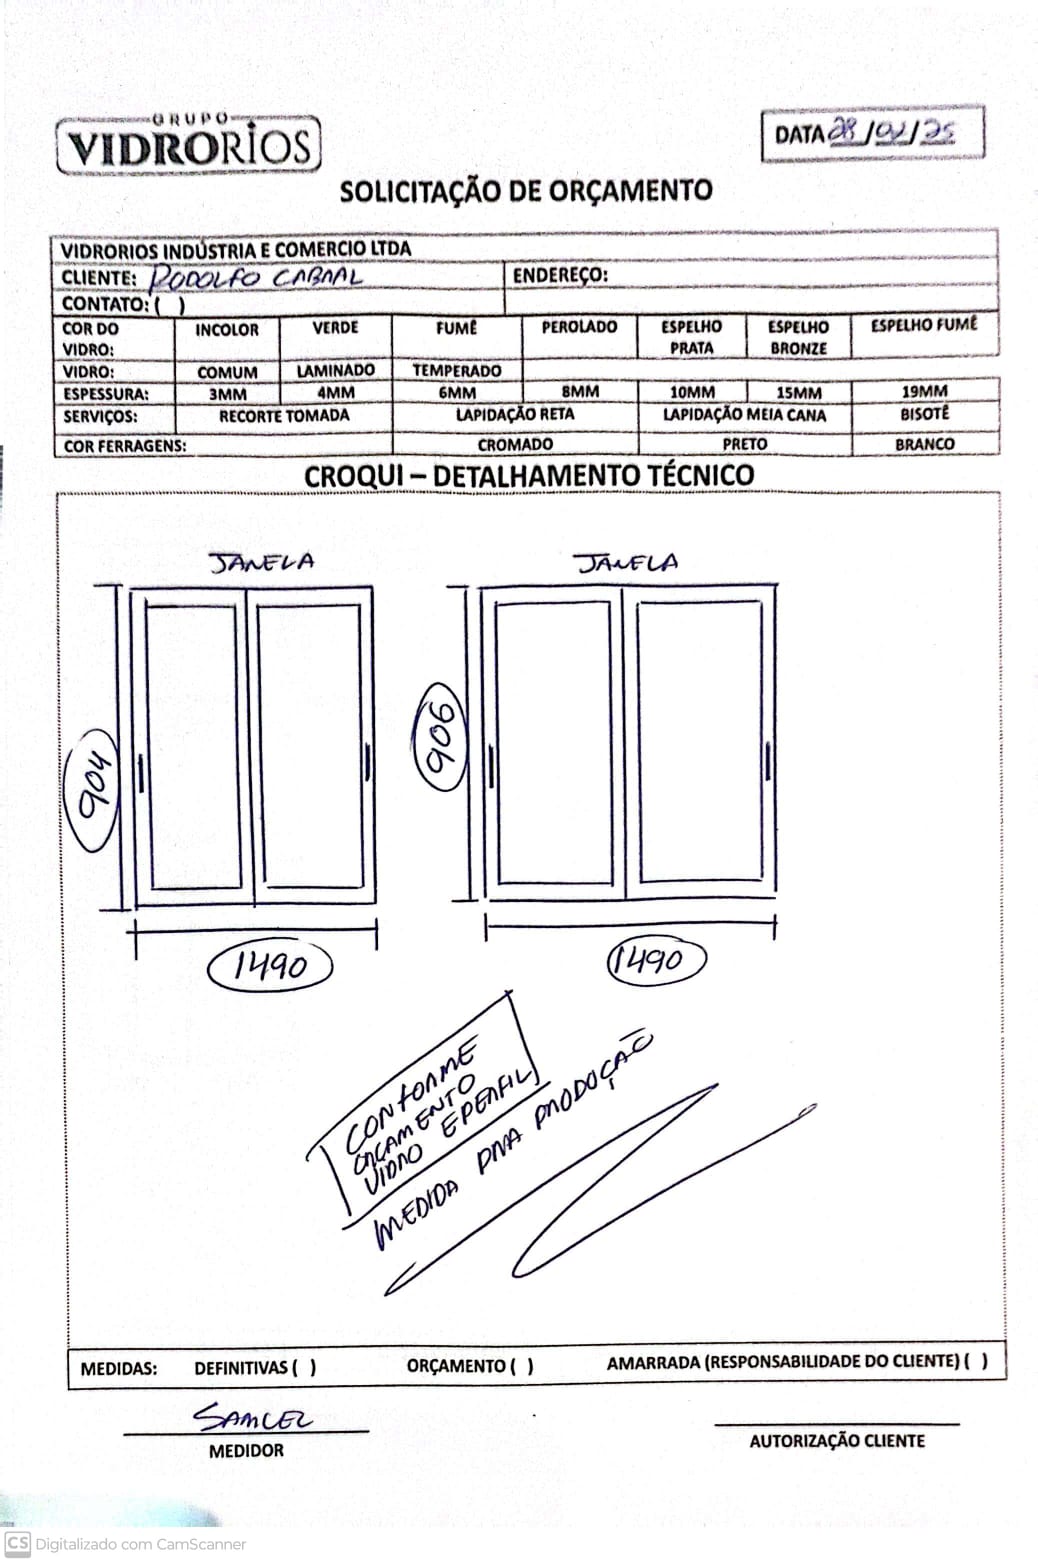 GRUPO
VIDRORIOS
DATA 28/02/25
SOLICITAÇÃO DE ORÇAMENTO
VIDRORIOS INDÚSTRIA E COMERCIO LTDA
CLIENTE: RODOLFO CABRAL ENDEREÇO:
CONTATO: ( )
COR DO VIDRO: INCOLOR VERDE FUMÊ PEROLADO ESPELHO PRATA ESPELHO BRONZE ESPELHO FUMÊ
VIDRO: COMUM LAMINADO TEMPERADO
ESPESSURA: 3MM 4MM 6MM 8MM 10MM 15MM 19MM
SERVIÇOS: RECORTE TOMADA LAPIDAÇÃO RETA LAPIDAÇÃO MEIA CANA BISOTÊ
COR FERRAGENS: CROMADO PRETO BRANCO
CROQUI – DETALHAMENTO TÉCNICO
JANELA JANELA
904 906
1490 1490
CONFORME
ORÇAMENTO
VIDRO E PERFIL
MEDIDA PRA PRODUÇÃO
MEDIDAS: DEFINITIVAS ( ) ORÇAMENTO ( ) AMARRADA (RESPONSABILIDADE DO CLIENTE) ( )
SAMUEL
MEDIDOR AUTORIZAÇÃO CLIENTE
CS Digitalizado com CamScanner